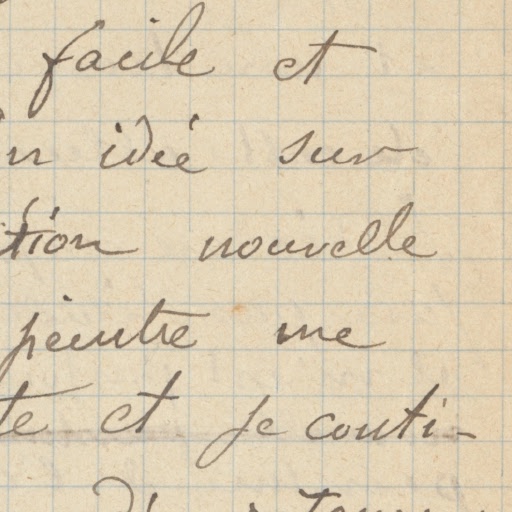 facile et
'un idée sur
tion nouvelle
peintre me
te et je conti-